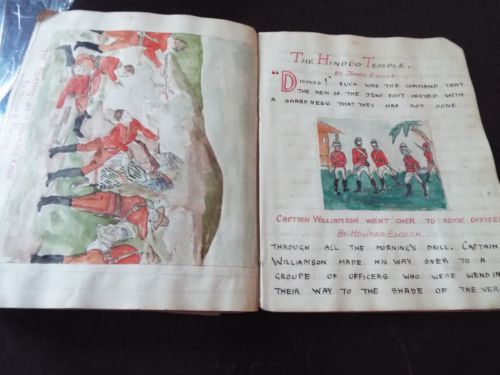 The Hindoo Temple.
By James Elcock.
"Dismiss!" Such was the command that
the men of the 32nd Foot obeyed with
a sharpness that they had not done
Captain Williamson went over to some officers
By Howard Elcock.
through all the morning's drill. Captain
Williamson made his way over to a
groupe of officers who were wending
their way to the shade of the ver